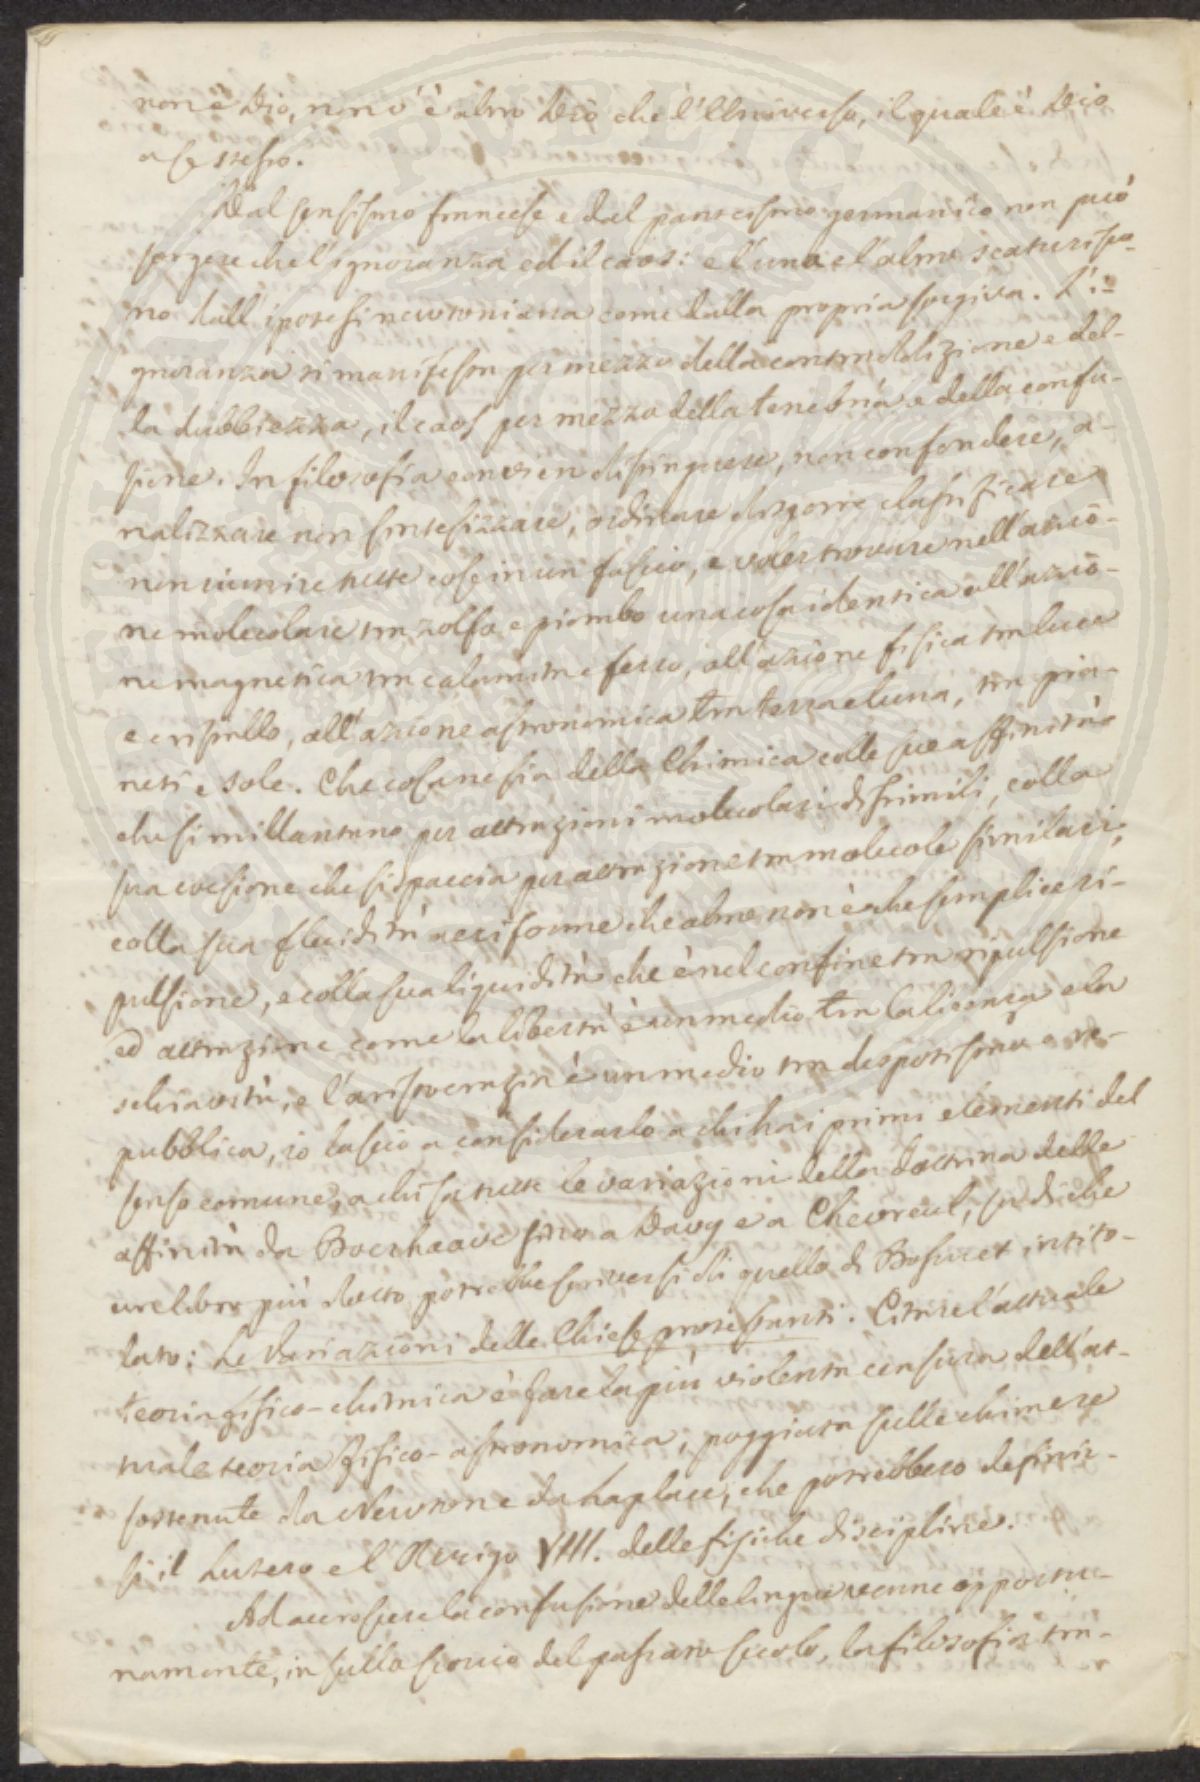 non è Dio, non v'è altro Dio che l'Universo, il quale è Dio
a se stesso.
Dal sensismo francese e dal panteismo germanico non può
sorgere che l'ignoranza ed il caos: e l'una e l'altro scaturisco-
no dall'ipotesi newtoniana come dalla propria sorgiva. L'i-
gnoranza si manifesta per mezzo della contraddizione e del-
la dubbiezza, il caos per mezzo della tenebria e della confu-
sione. In filosofia convien distinguere, non confondere, a-
nalizzare non sintesizzare, ordinare disporre classificare
non riunire tutte cose in un fascio, e voler trovare nell'azio-
ne molecolare tra zolfo e piombo una cosa identica all'azio-
ne magnetica tra calamita e ferro, all'azione fisica tra luce
e cristallo, all'azione astronomica tra terra e luna, tra pia-
neti e sole. Che cosa ne sia della Chimica colle sue affinità
che si millantano per attrazioni molecolari dissimili, colla
sua coesione che si spaccia per attrazione tra molecole similari,
colla sua fluidità aeriforme che altro non è che semplice ri-
pulsione, e colla sua liquidità che è nel confine tra ripulsione
ed attrazione come la libertà è un medio tra la licenza e la
schiavitù, e l'aristocrazia è un medio tra despotismo e re-
pubblica, io lascio a considerarlo a chi ha i primi elementi del
senso comune, a chi sa tutte le variazioni della dottrina delle
affinità da Boerhaave sino a Davy e a Chevreul, su di che
un libro più dotto potrebbe scriversi di quello di Bossuet intito-
lato: Le Variazioni delle Chiese protestanti. Citare l'attuale
teoria fisico-chimica è fare la più violenta censura dell'at-
tuale teoria fisico-astronomica, poggiata sulle chimere
sostenute da Newton e da Laplace, che potrebbero definir-
si il Lutero e l'Arrigo VIII. delle fisiche discipline.
Ad accrescere la confusione delle lingue venne opportu-
namente, in sullo scorcio del passato secolo, la filosofia tra-